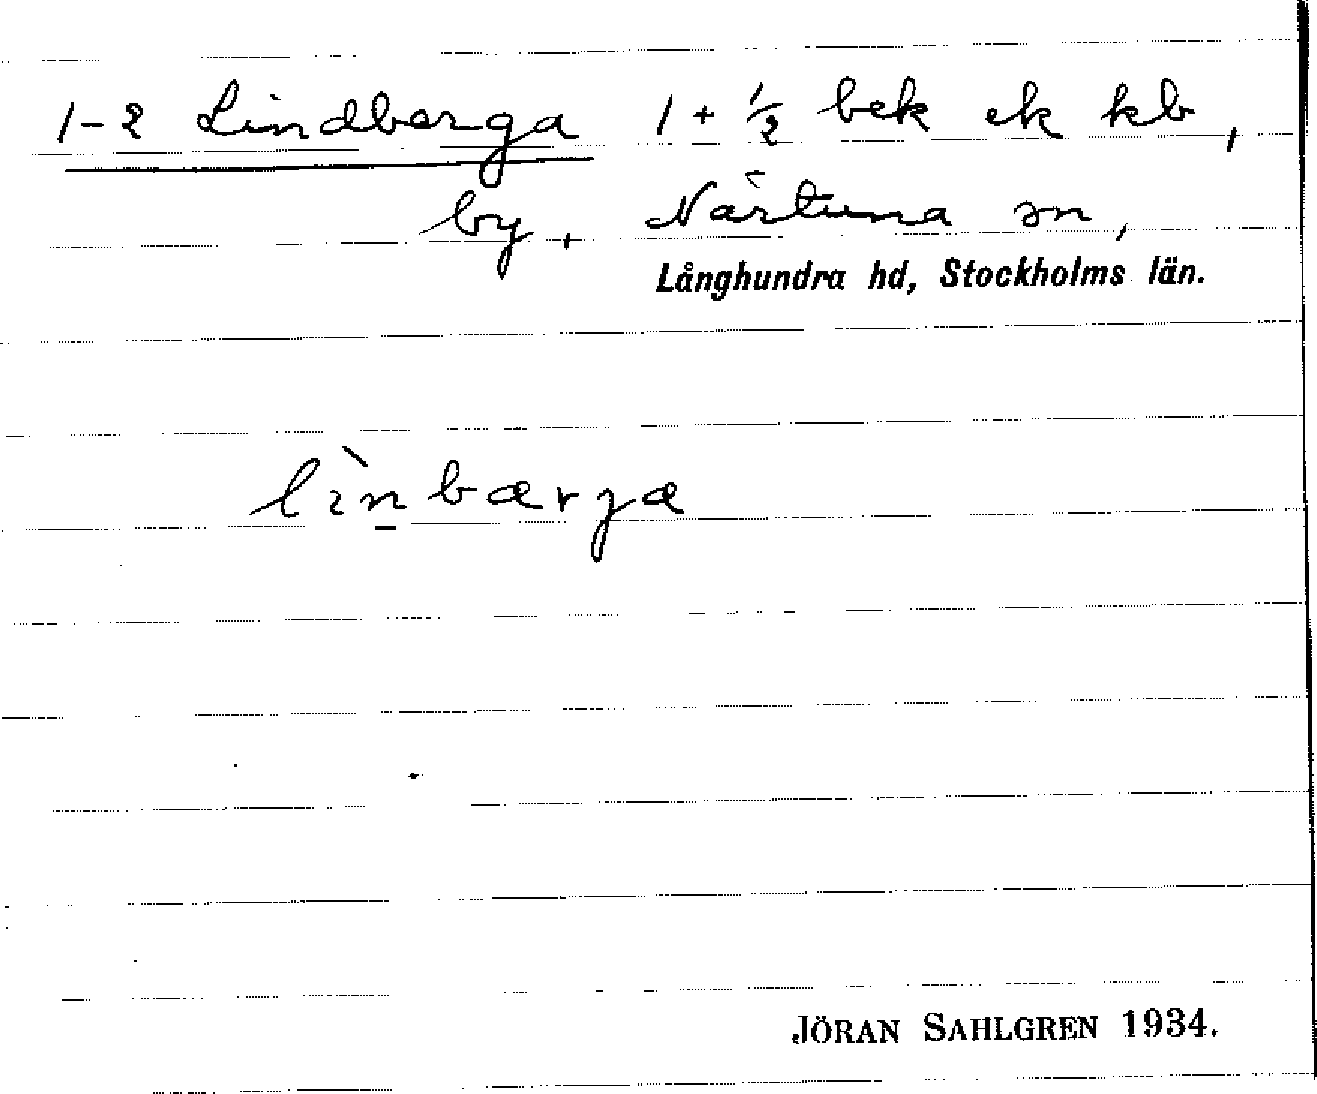 1-2 Lindberga 1 + 1/2 bek ek kb,
by, Närtuna sn,
Långhundra hd, Stockholms län.
lìn̠bærgæ
JÖRAN SAHLGREN 1934.